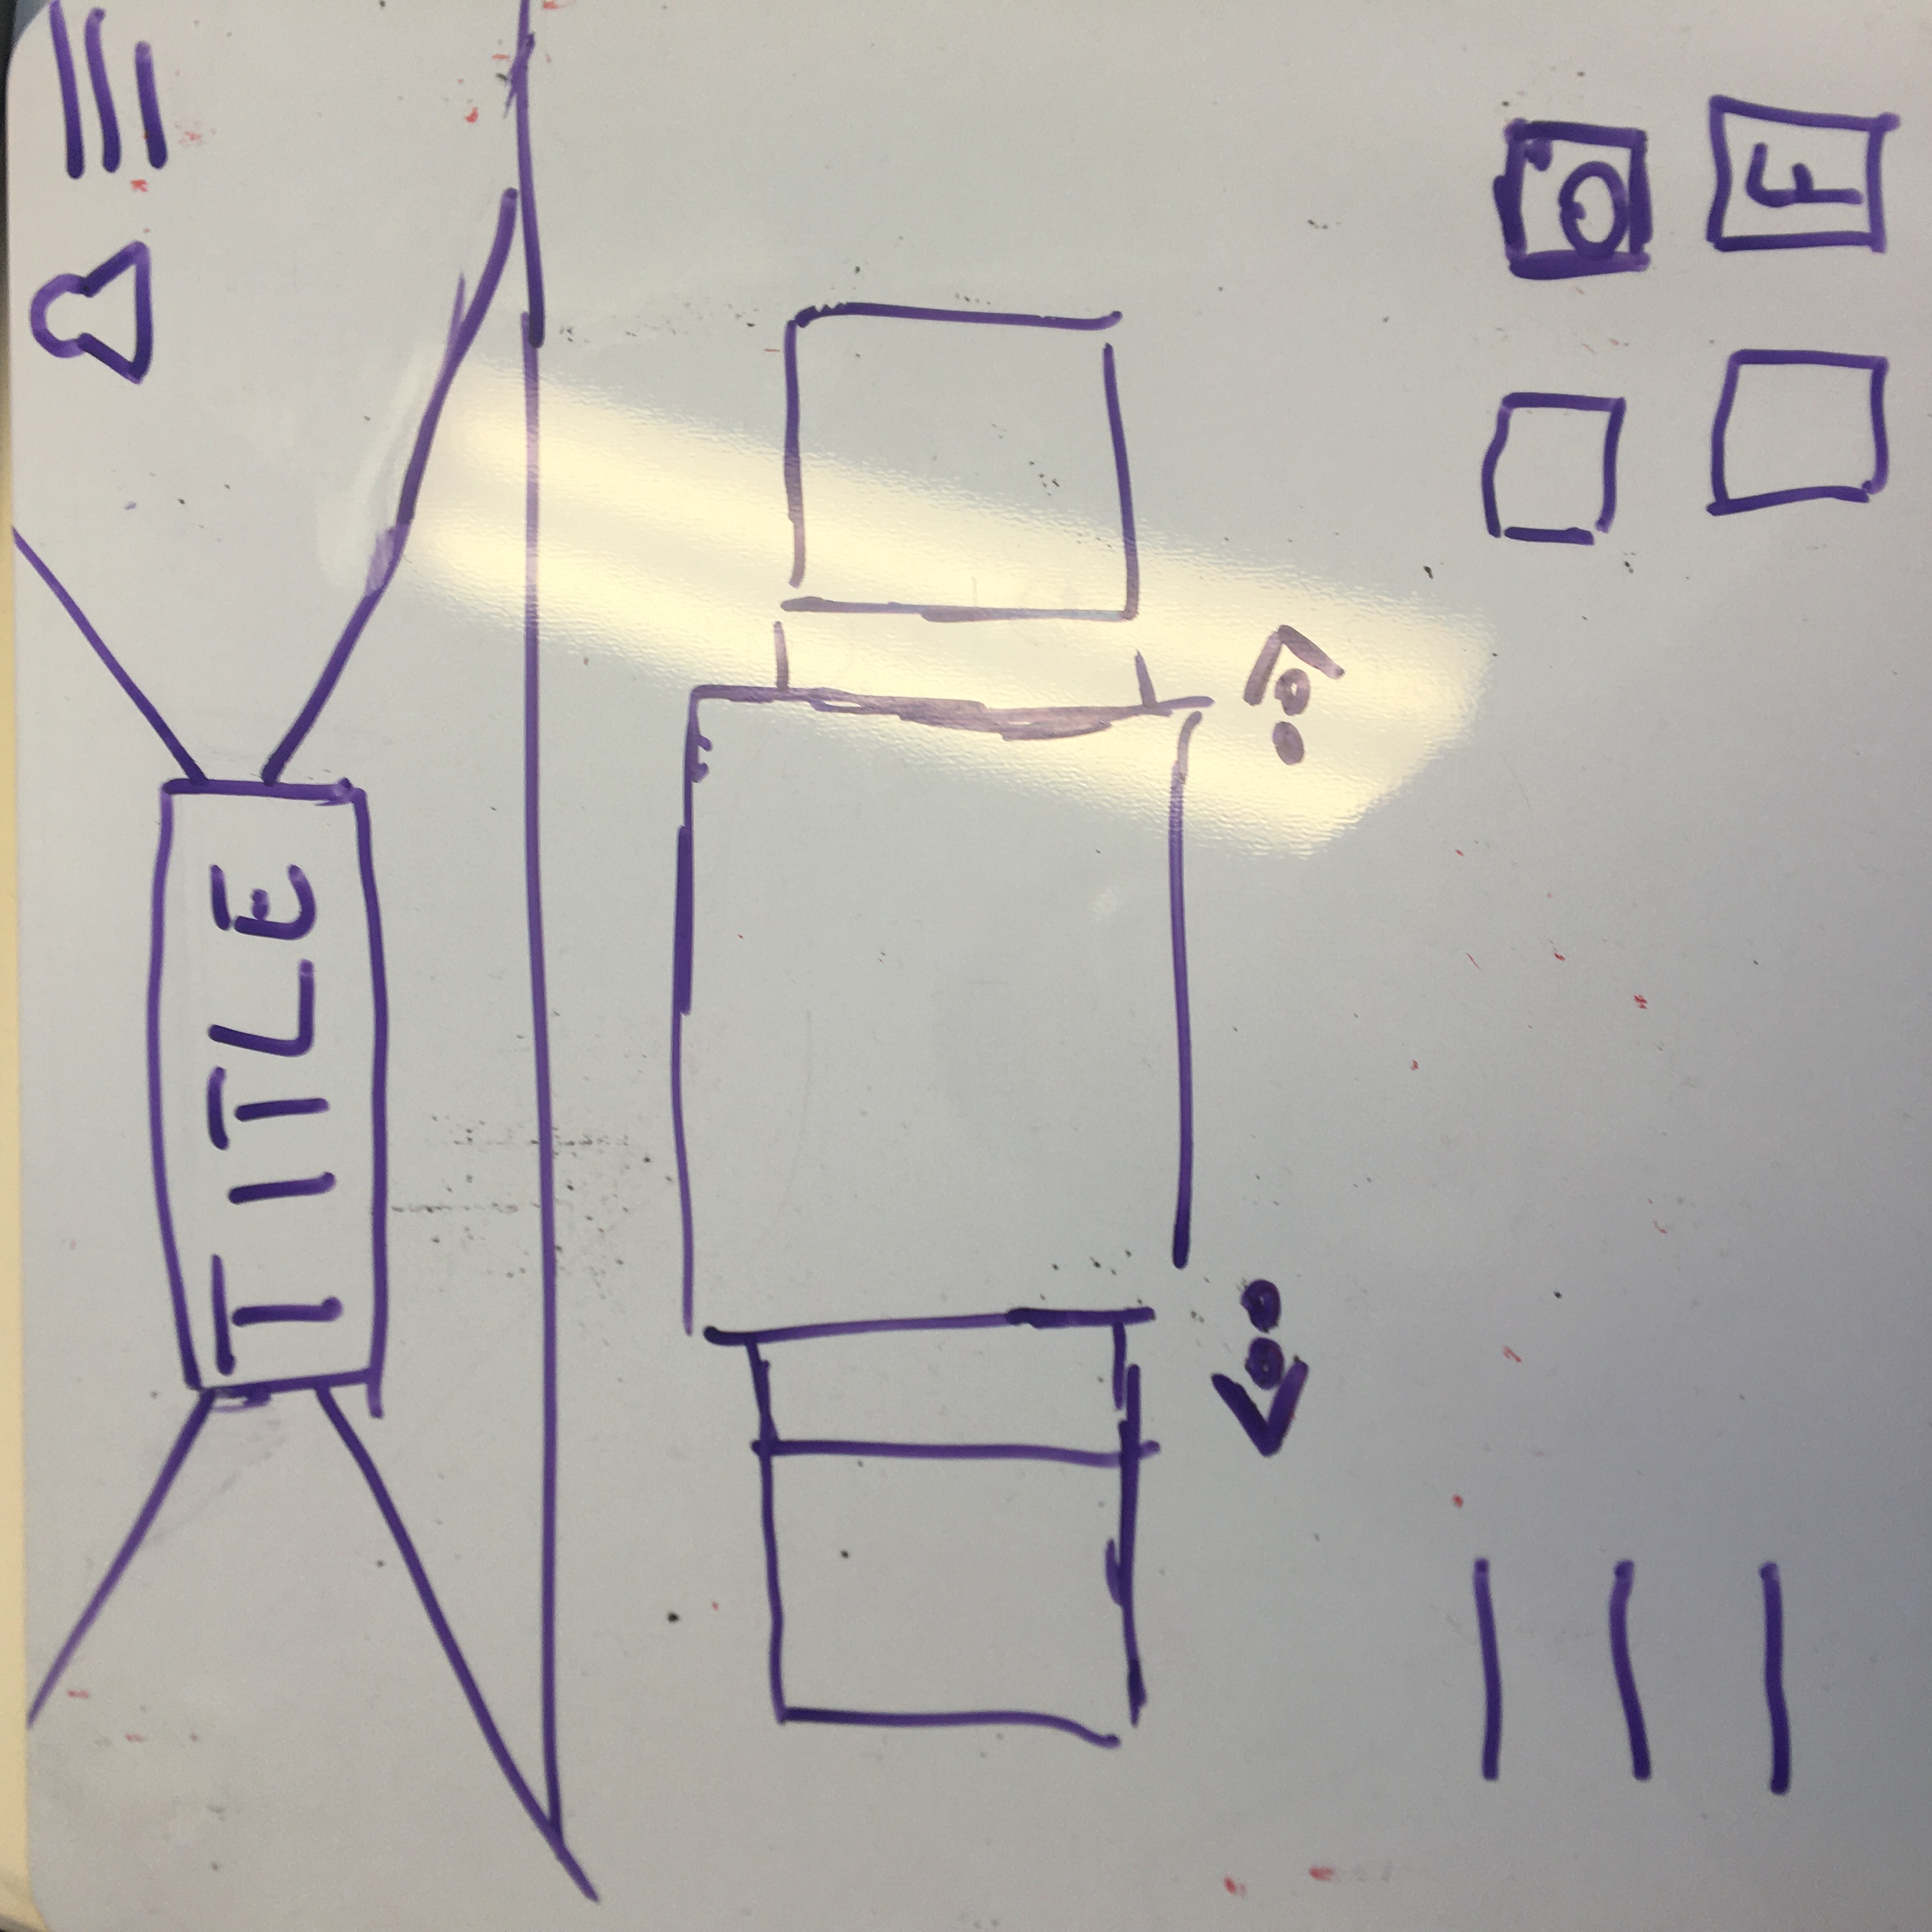 TITLE
F